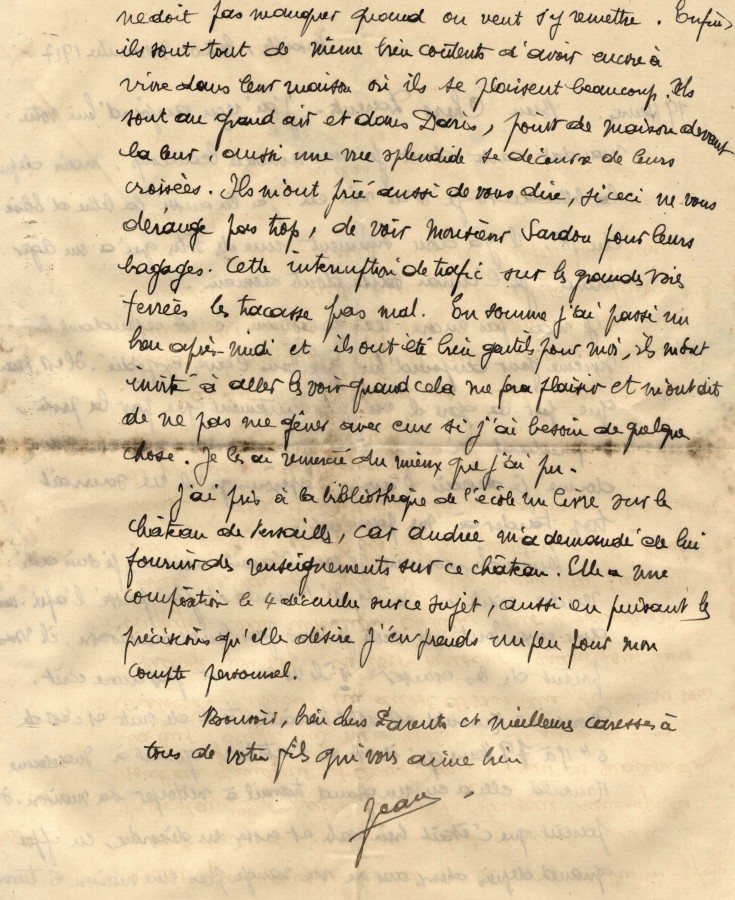 ne doit pas manquer quand on veut s'y remettre. Enfin
ils sont tout de même bien contents d'avoir encore à
vivre dans leur maison où ils se plaisent beaucoup. Ils
sont au grand air et dans Paris, point de maison devant
la leur, aussi une vue splendide se découvre de leurs
croisées. Ils m'ont prié aussi de vous dire, si ceci ne vous
dérange pas trop, de voir Monsieur Sardou pour leurs
bagages. Cette interruption de trafic sur les grandes voies
ferrées les tracasse pas mal. En somme j'ai passé un
bon après-midi et ils ont été bien gentils pour moi, ils m'ont
invité à aller les voir quand cela me fera plaisir et m'ont dit
de ne pas me gêner avec eux si j'ai besoin de quelque
chose. Je les ai remercié du mieux que j'ai pu.
J'ai pris à la bibliothèque de l'école un livre sur le
château de Versailles, car Andrée m'a demandé de lui
fournir des renseignements sur ce château. Elle a une
composition le 4 décembre sur ce sujet, aussi en puisant les
précisions qu'elle désire j'en prends un peu pour mon
compte personnel.
Bonsoir, bien chers Parents et meilleures caresses à
tous de votre fils qui vous aime bien
Jean